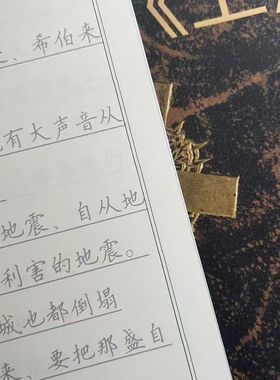 、希伯来
有大声音从
地震、自从地
利害的地震。
城也都倒塌
来、要把那盛自
《工